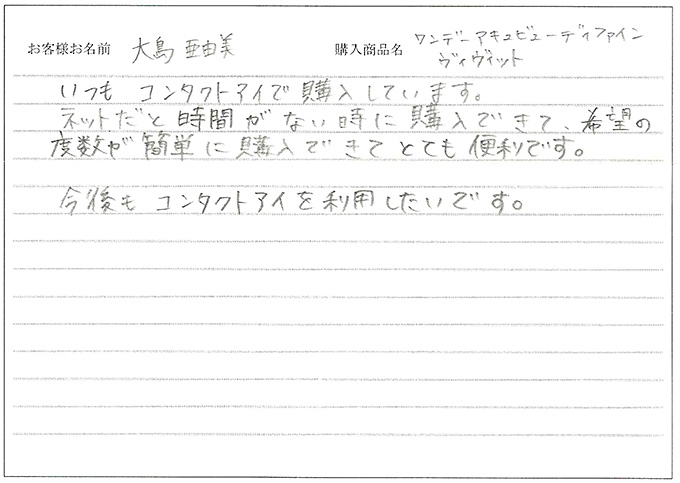 お客様お名前 大島 亜由美 購入商品名 ワンデーアキュビューディファイン
ヴィヴィット
いつも コンタクトアイで購入しています。
ネットだと時間がない時に購入できて、希望の
度数が簡単に購入できてとても便利です。
今後も コンタクトアイを利用したいです。